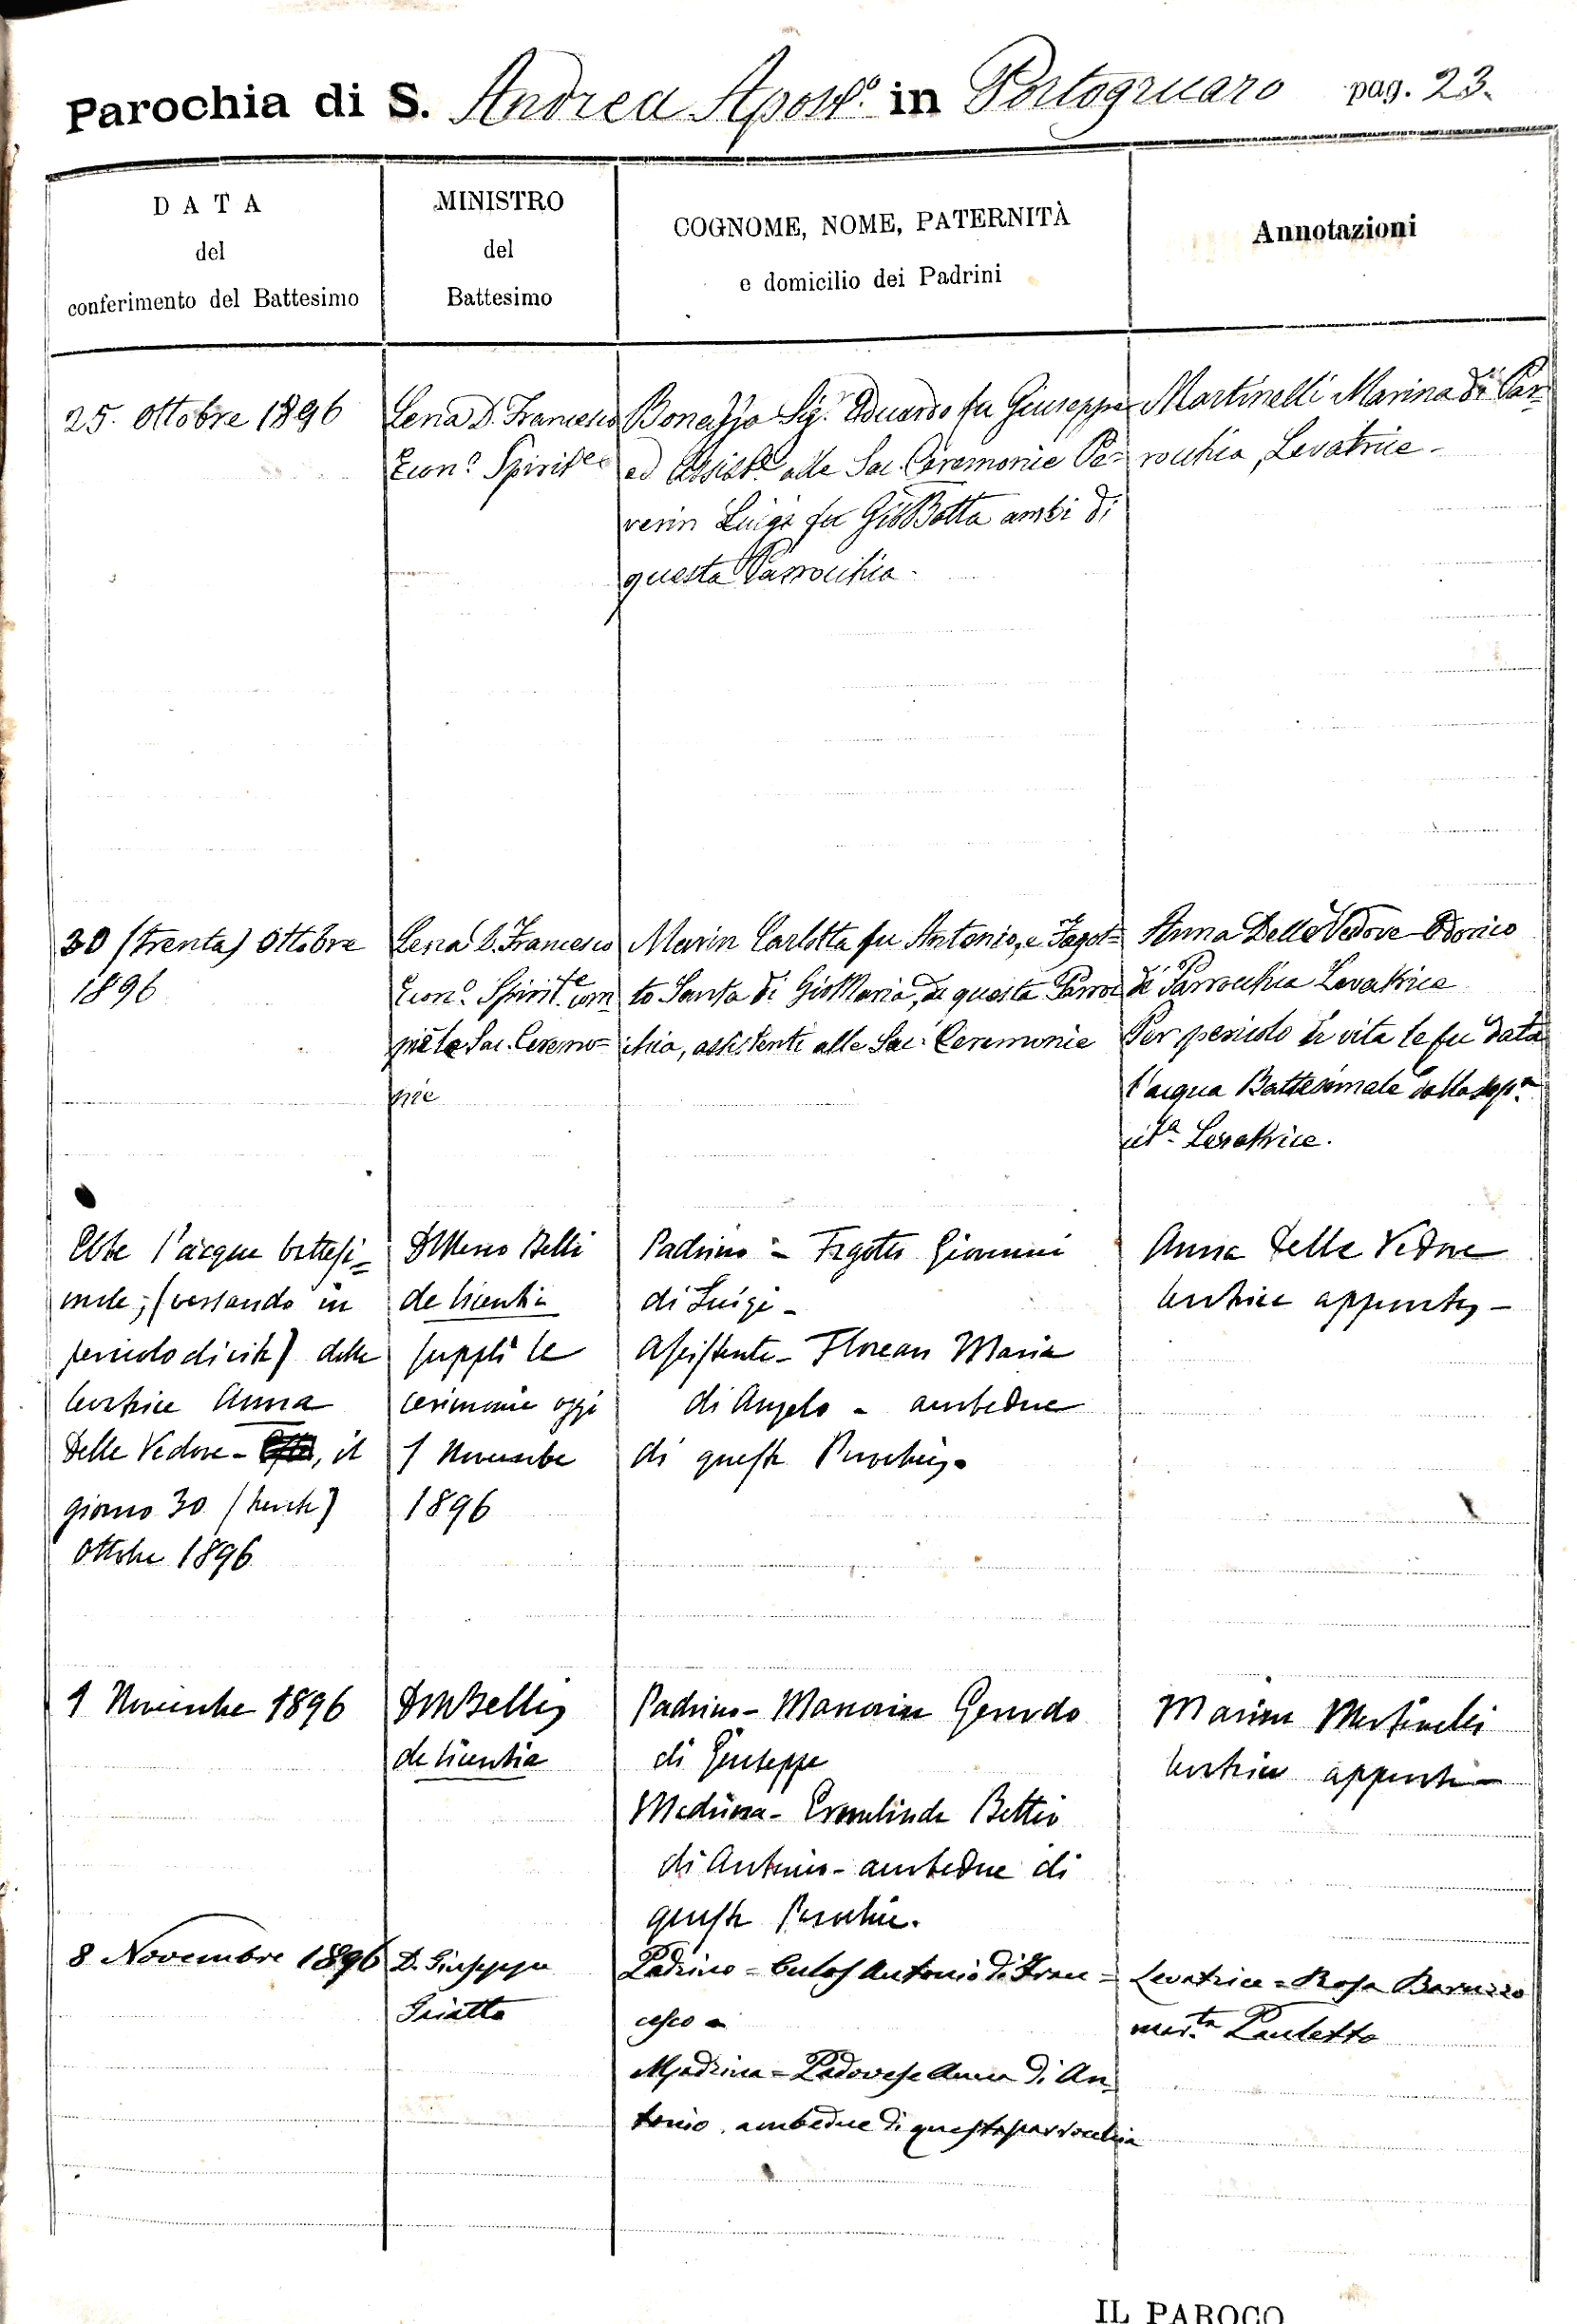 Parochia di S. Andrea Apost.º in Portogruaro pag. 23.
DATA
del
conferimento del Battesimo
MINISTRO
del
Battesimo
COGNOME, NOME, PATERNITÀ
e domicilio dei Padrini
Annotazioni
25. Ottobre 1896
Lena D. Francesco
Econº. Spirit.e
Bonazza Sig.r Eduardo fu Giuseppe
ed Assist.e alle Sac. Ceremonie Pe-
verin Luigi fu GioBatta ambi di
questa Parrocchia.
Martinelli Marina di Par-
rocchia, Levatrice.
30 (trenta) Ottobre
1896
Lena D. Francesco
Econº. Spirit.e com
piè le Sac. Ceremo=
nie
Marin Carlotta fu Antonio, e Fagot=
to Santa di GioMaria, di questa Parroc
chia, assistenti alle Sac. Ceremonie
Anna Delle Vedove Odorico
di Parrocchia Levatrice
Per pericolo di vita le fu data
l'acqua Battesimale dalla
Levatrice.
Ebbe l'acqua battesi=
male, (versando in
pericolo di vita) dalla
levatrice Anna
Delle Vedove - , il
giorno 30 (trenta)
Ottobre 1896
Belli
de licentia
supplì le
cerimonie oggi
1 Novembre
1896
Padrino - Fagotto Giovanni
di Luigi -
Assistente - Florean Maria
di Angelo - ambedue
di questa Parochia.
Anna Delle Vedove
levatrice approvata -
1 Novembre 1896
D M Belli
de licentia
Padrino - Gerardo
di Giuseppe
Madrina - Ermelinda Bettio
di Antonio - ambedue di
questa Parochia.
Marina Martinelli
levatrice approvata -
8 Novembre 1896
D. Giuseppe
Padrino = Culos Antonio di Fran=
cesco =
Madrina = Padovese Anna di An
tonio, ambedue di questa parrocchia
Levatrice = Rosa Baruzzo
mar.ta Pauletto
IL PAROCO